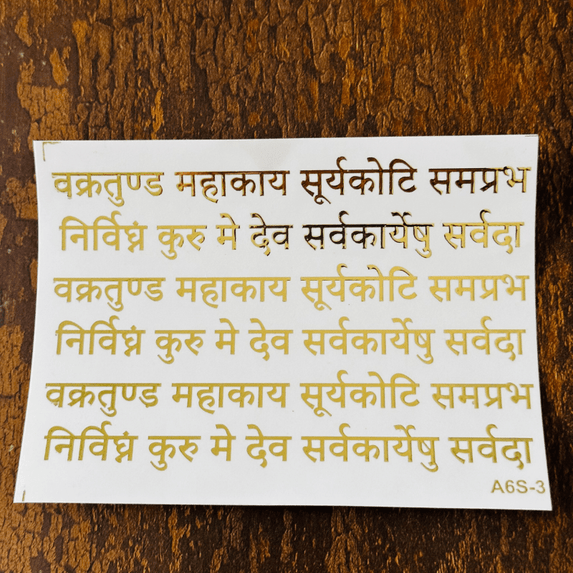 वक्रतुण्ड महाकाय सूर्यकोटि समप्रभ
निर्विघ्नं कुरु मे देव सर्वकार्येषु सर्वदा
वक्रतुण्ड महाकाय सूर्यकोटि समप्रभ
निर्विघ्नं कुरु मे देव सर्वकार्येषु सर्वदा
वक्रतुण्ड महाकाय सूर्यकोटि समप्रभ
निर्विघ्नं कुरु मे देव सर्वकार्येषु सर्वदा
A6S-3